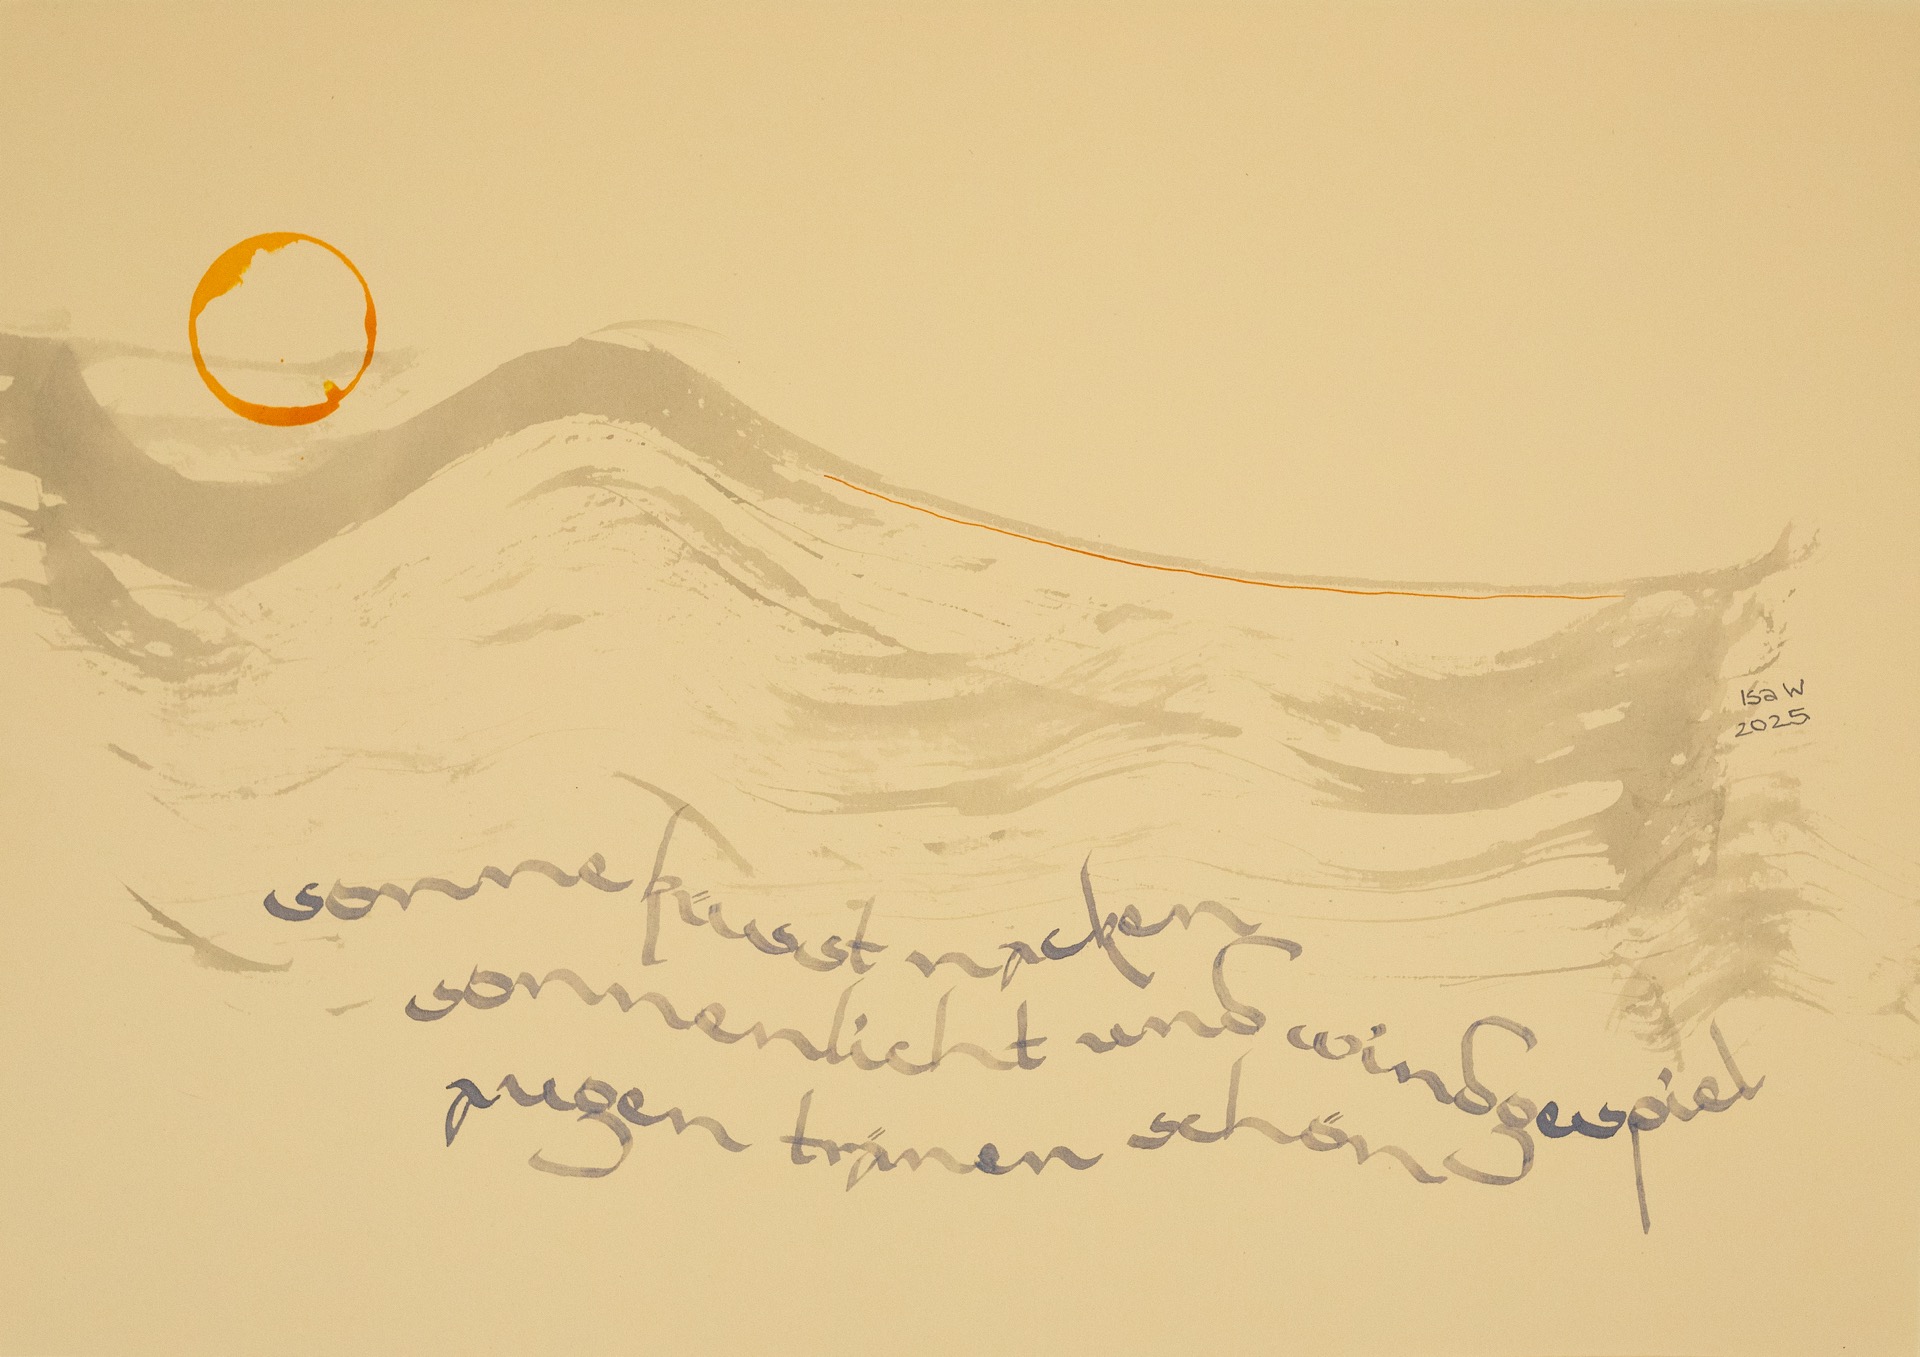 Isa W
2025
sonne küsst nacken
sonnenlicht und windgespiel
augen tränen schön